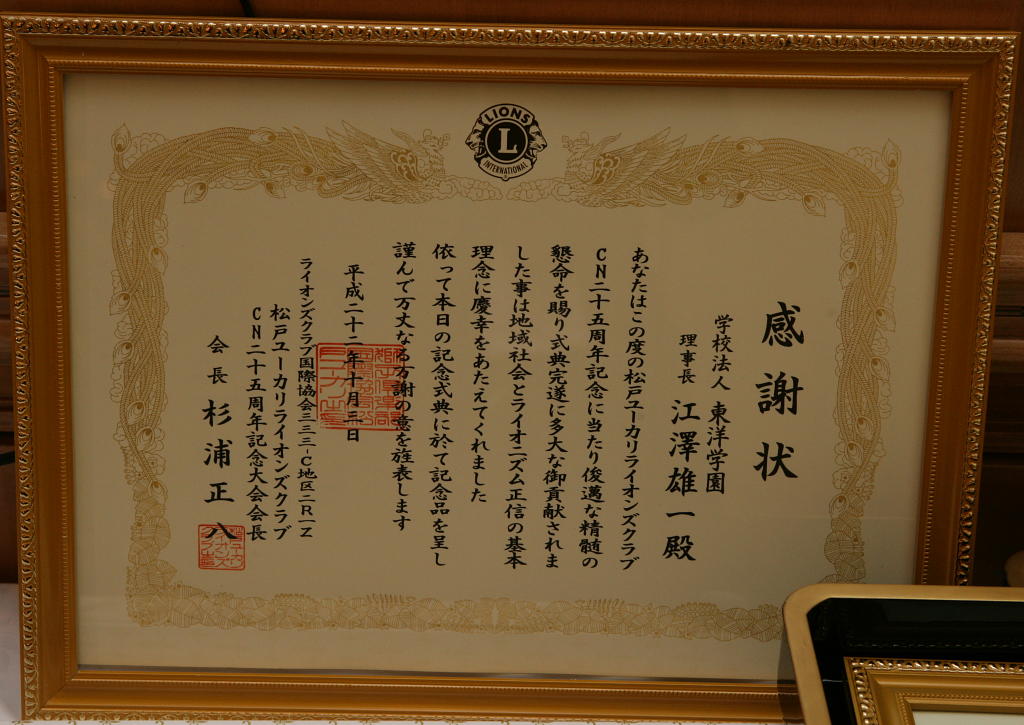 LIONS
L
INTERNATIONAL
感謝状
学校法人 東洋学園
理事長 江澤雄一殿
あなたはこの度の松戸ユーカリライオンズクラブ
CN二十五周年記念に当たり俊邁な精髄の
懇命を賜り式典完遂に多大な御貢献されま
した事は地域社会とライオニズム正信の基本
理念に慶幸をあたえてくれました
依って本日の記念式典に於て記念品を呈し
謹んで万丈なる万謝の意を旌表します
平成二十二年十月三日
ライオンズクラブ国際協会三三三-C地区二R一Z
松戸ユーカリライオンズクラブ
CN二十五周年記念大会会長
会長 杉浦正八